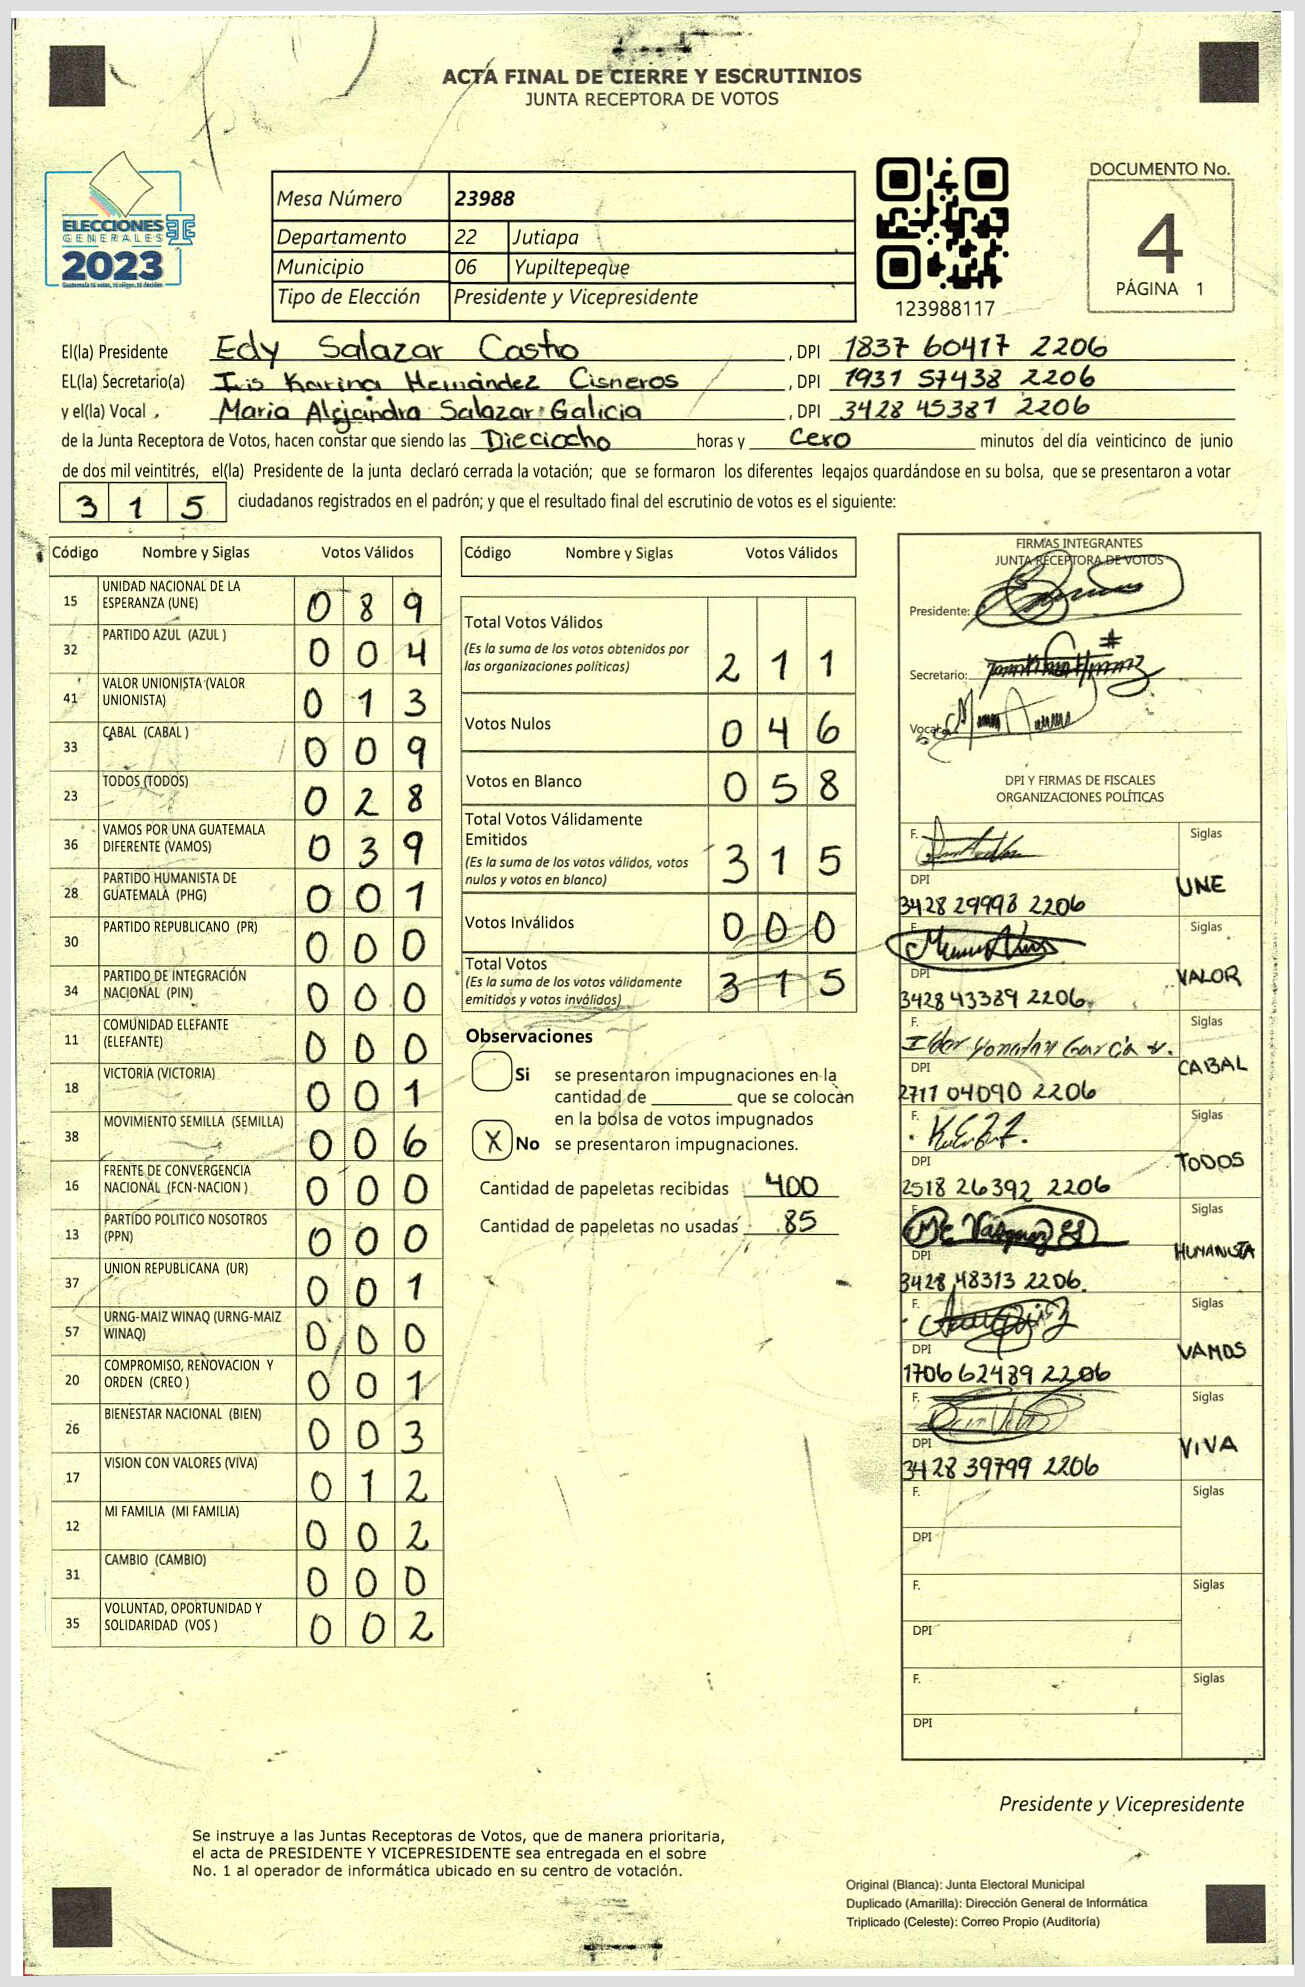 ACTA FINAL DE CIERRE Y ESCRUTINIOS
JUNTA RECEPTORA DE VOTOS
ELECCIONES
GENERALES
2023
Mesa Número 23988
Departamento 22 Jutiapa
Municipio 06 Yupiltepeque
Tipo de Elección Presidente y Vicepresidente
123988117
DOCUMENTO No.
4
PÁGINA 1
El(la) Presidente Edy Salazar Castro , DPI 1837 60417 2206
EL(la) Secretario(a) Iris Karina Hernández Cisneros , DPI 1931 57438 2206
y el(la) Vocal Maria Alejandra Salazar Galicia , DPI 3428 45381 2206
de la Junta Receptora de Votos, hacen constar que siendo las Dieciocho horas y cero minutos del día veinticinco de junio
de dos mil veintitrés, el(la) Presidente de la junta declaró cerrada la votación; que se formaron los diferentes legajos guardándose en su bolsa, que se presentaron a votar
315 ciudadanos registrados en el padrón; y que el resultado final del escrutinio de votos es el siguiente:
Código Nombre y Siglas Votos Válidos
15 UNIDAD NACIONAL DE LA ESPERANZA (UNE) 089
32 PARTIDO AZUL (AZUL ) 004
41 VALOR UNIONISTA (VALOR UNIONISTA) 013
33 CABAL (CABAL ) 009
23 TODOS (TODOS) 028
36 VAMOS POR UNA GUATEMALA DIFERENTE (VAMOS) 039
28 PARTIDO HUMANISTA DE GUATEMALA (PHG) 001
30 PARTIDO REPUBLICANO (PR) 000
34 PARTIDO DE INTEGRACIÓN NACIONAL (PIN) 000
11 COMUNIDAD ELEFANTE (ELEFANTE) 000
18 VICTORIA (VICTORIA) 001
38 MOVIMIENTO SEMILLA (SEMILLA) 006
16 FRENTE DE CONVERGENCIA NACIONAL (FCN-NACION ) 000
13 PARTIDO POLITICO NOSOTROS (PPN) 000
37 UNION REPUBLICANA (UR) 001
57 URNG-MAIZ WINAQ (URNG-MAIZ WINAQ) 000
20 COMPROMISO, RENOVACION Y ORDEN (CREO ) 001
26 BIENESTAR NACIONAL (BIEN) 003
17 VISION CON VALORES (VIVA) 012
12 MI FAMILIA (MI FAMILIA) 002
31 CAMBIO (CAMBIO) 000
35 VOLUNTAD, OPORTUNIDAD Y SOLIDARIDAD (VOS ) 002
Código Nombre y Siglas Votos Válidos
Total Votos Válidos
(Es la suma de los votos obtenidos por
las organizaciones políticas) 211
Votos Nulos 046
Votos en Blanco 058
Total Votos Válidamente
Emitidos
(Es la suma de los votos válidos, votos
nulos y votos en blanco) 315
Votos Inválidos 000
Total Votos
(Es la suma de los votos válidamente
emitidos y votos inválidos) 315
Observaciones
Si se presentaron impugnaciones en la
cantidad de ________ que se colocan
en la bolsa de votos impugnados
X No se presentaron impugnaciones.
Cantidad de papeletas recibidas 400
Cantidad de papeletas no usadas 85
FIRMAS INTEGRANTES
JUNTA RECEPTORA DE VOTOS
Presidente:
Secretario:
Vocal:
DPI Y FIRMAS DE FISCALES
ORGANIZACIONES POLÍTICAS
F. Siglas
DPI UNE
3428 29998 2206
F. Siglas
DPI VALOR
3428 43389 2206
F. Siglas
DPI CABAL
2711 04090 2206
F. Siglas
DPI TODOS
2518 26392 2206
F. Siglas
DPI HUMANISTA
3428 48313 2206
F. Siglas
DPI VAMOS
1706 62489 2206
F. Siglas
DPI VIVA
3428 39799 2206
F. Siglas
DPI
F. Siglas
DPI
F. Siglas
DPI
Presidente y Vicepresidente
Se instruye a las Juntas Receptoras de Votos, que de manera prioritaria,
el acta de PRESIDENTE Y VICEPRESIDENTE sea entregada en el sobre
No. 1 al operador de informática ubicado en su centro de votación.
Original (Blanca): Junta Electoral Municipal
Duplicado (Amarilla): Dirección General de Informática
Triplicado (Celeste): Correo Propio (Auditoría)